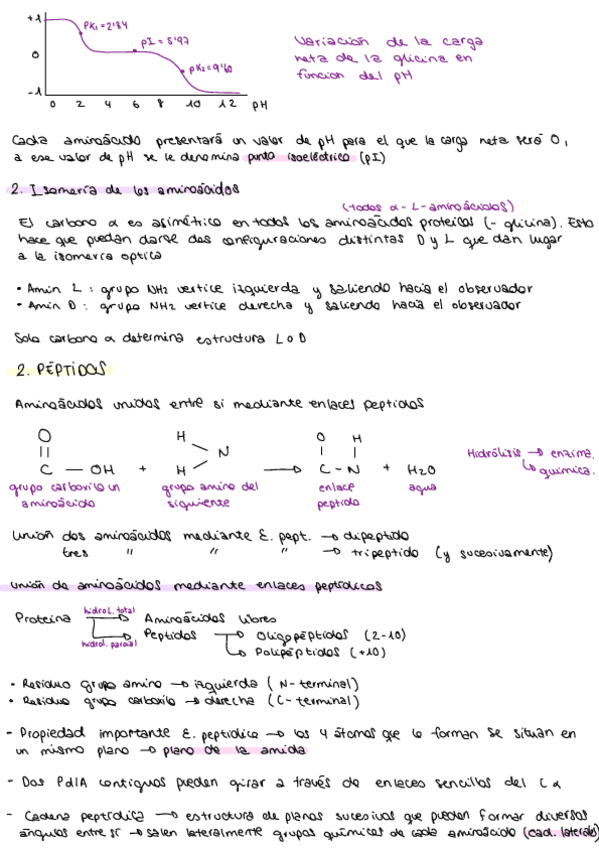 +1
pK1 = 2'34
pI = 5'97
0
pK2 = 9'60
-1
0 2 4 6 8 10 12 pH
Variación de la carga
neta de la glicina en
función del pH
Cada aminoácido presentará un valor de pH para el que la carga neta será 0,
a ese valor de pH se le denomina punto isoeléctrico (pI)
2. Isomería de los aminoácidos
(todos α-L-aminoácidos)
El carbono α es asimétrico en todos los aminoácidos proteicos (- glicina). Esto
hace que puedan darse dos configuraciones distintas D y L que dan lugar
a la isomería optica
• Amin L : grupo NH2 vertice izquierda y saliendo hacia el observador
• Amin D : grupo NH2 vertice derecha y saliendo hacia el observador
Solo carbono α determina estructura L o D
2. PÉPTIDOS
Aminoácidos unidos entre si mediante enlaces peptidos
O H O H
C — OH + H N → C - N + H2O
grupo carboxilo un aminoácido
grupo amino del siguiente
enlace peptido
agua
Hidrólisis → enzima.
↳ química.
Unión dos aminoácidos mediante E. pept. → dipeptido
tres " " " → tripeptido (y sucesivamente)
unión de aminoácidos mediante enlaces peptídicos
Proteina hidrol. total → Aminoácidos libres
hidrol. parcial → Peptidos → Oligopéptidos (2-10)
↳ Polipéptidos (+10)
• Residuo grupo amino → izquierda (N-terminal)
• Residuo grupo carboxilo → derecha (C-terminal)
- Propiedad importante E. peptídico → los 4 átomos que lo forman se situan en
un mismo plano → plano de la amida
- Dos PdlA contiguos pueden girar a través de enlaces sencillos del Cα
- Cadena peptídica → estructura de planos sucesivos que pueden formar diversos
ángulos entre sí → salen lateralmente grupos químicos de cada aminoácido (cad. laterales)